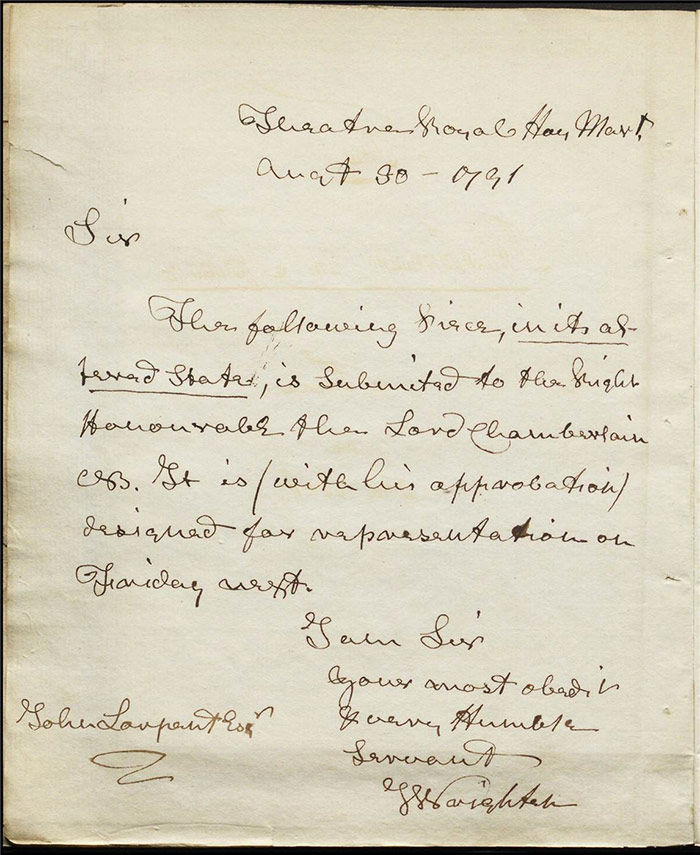 Theatre Royal Hay Mart.
Augt 30 - 1791
Sir
The following Piece, in its al-
tered State, is submitted to the Right
Honourable the Lord Chamberlain
&c. It is (with his approbation)
designed for representation on
Friday next.
I am Sir
Your most obedt
& very Humble
Servant
John Larpent Esqr
JWrighten